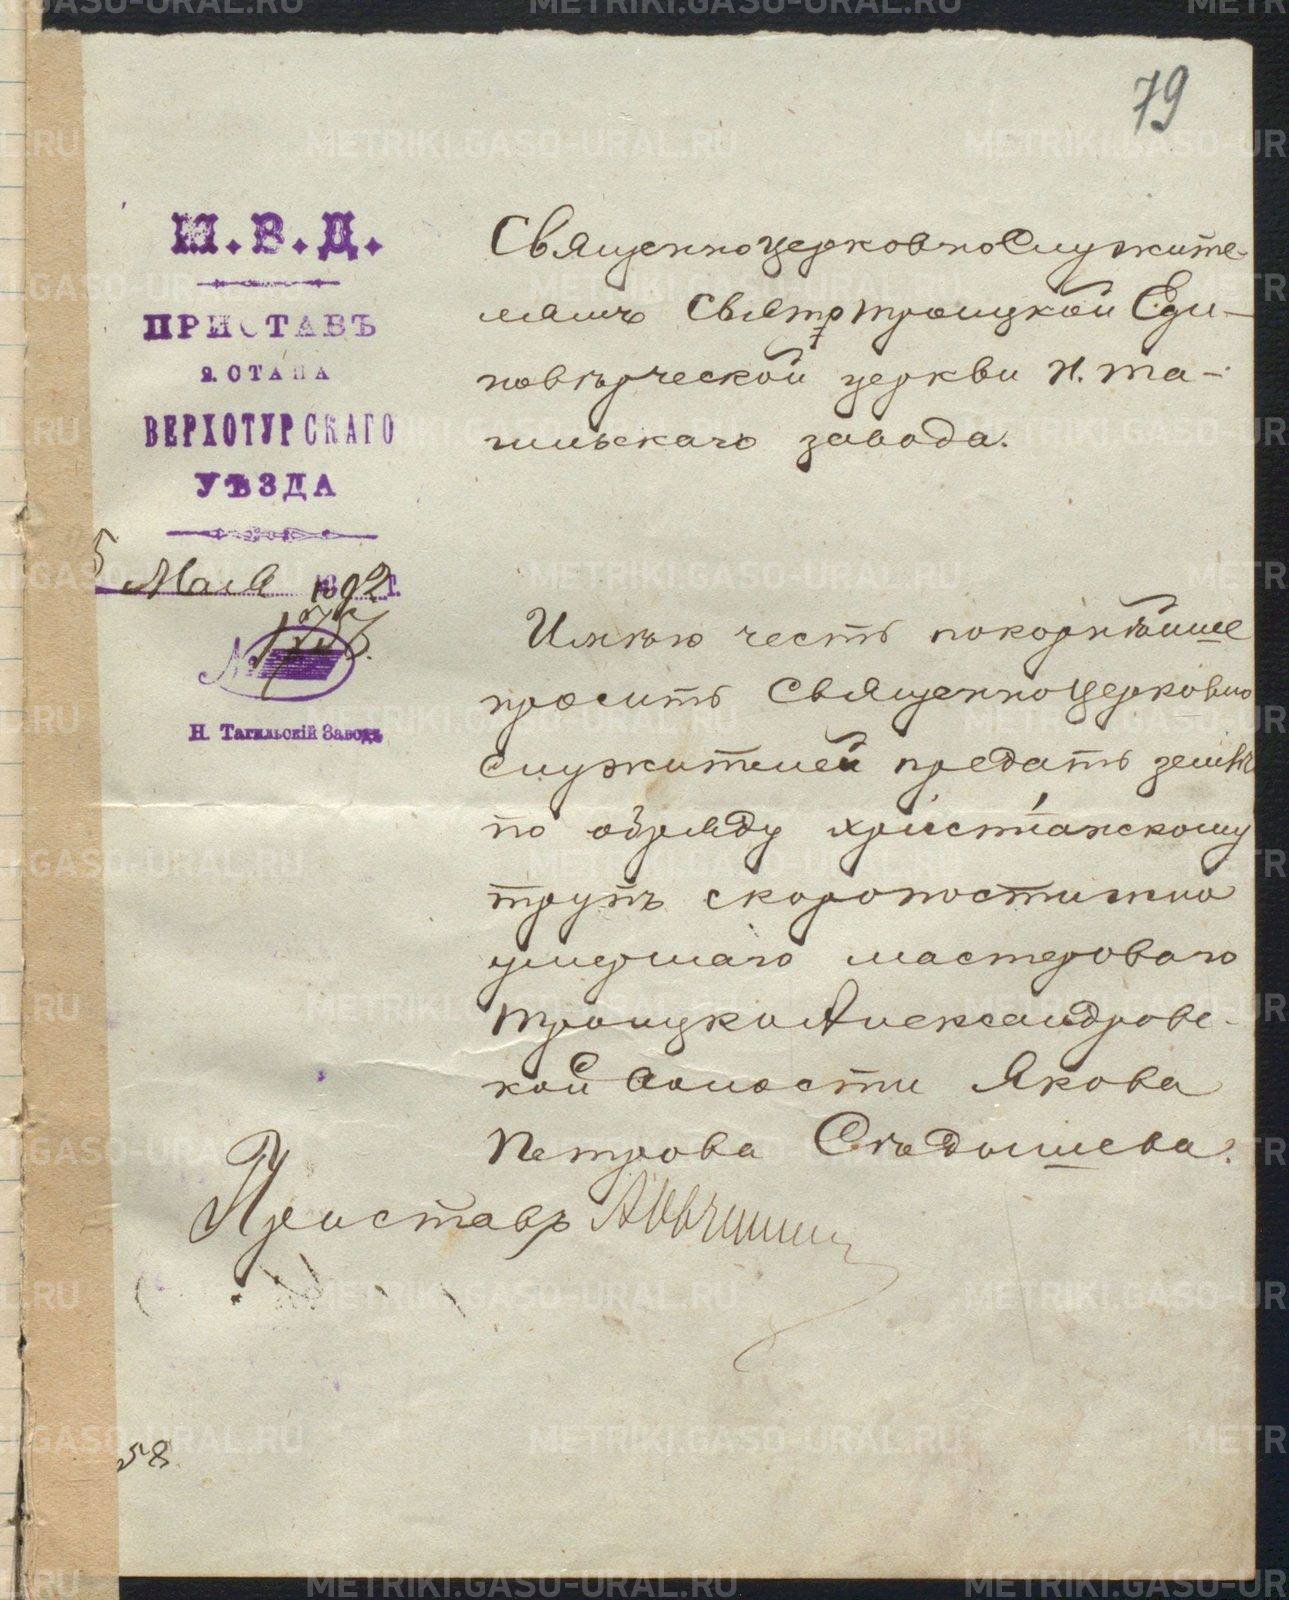 79
М.В.Д.
ПРИСТАВЪ
2. СТАНА
ВЕРХОТУРСКАГО
УѢЗДА
5 Мая 1892 г.
№ 1757.
Н. Тагильскій Заводъ
Священноцерковнослужите-
лямъ Святотроицкой Еди-
новѣрческой церкви Н. Та-
гильскаго завода.
Имѣю честь покорнѣйше
просить Священноцерковно
служителей предать землѣ
по обряду христіанскому
трупъ скоропостижно
умершаго мастероваго
Троицко Александровс-
кой волости Якова
Петрова Сѣдышева.
Приставъ
58
METRIKI.GASO-URAL.RU